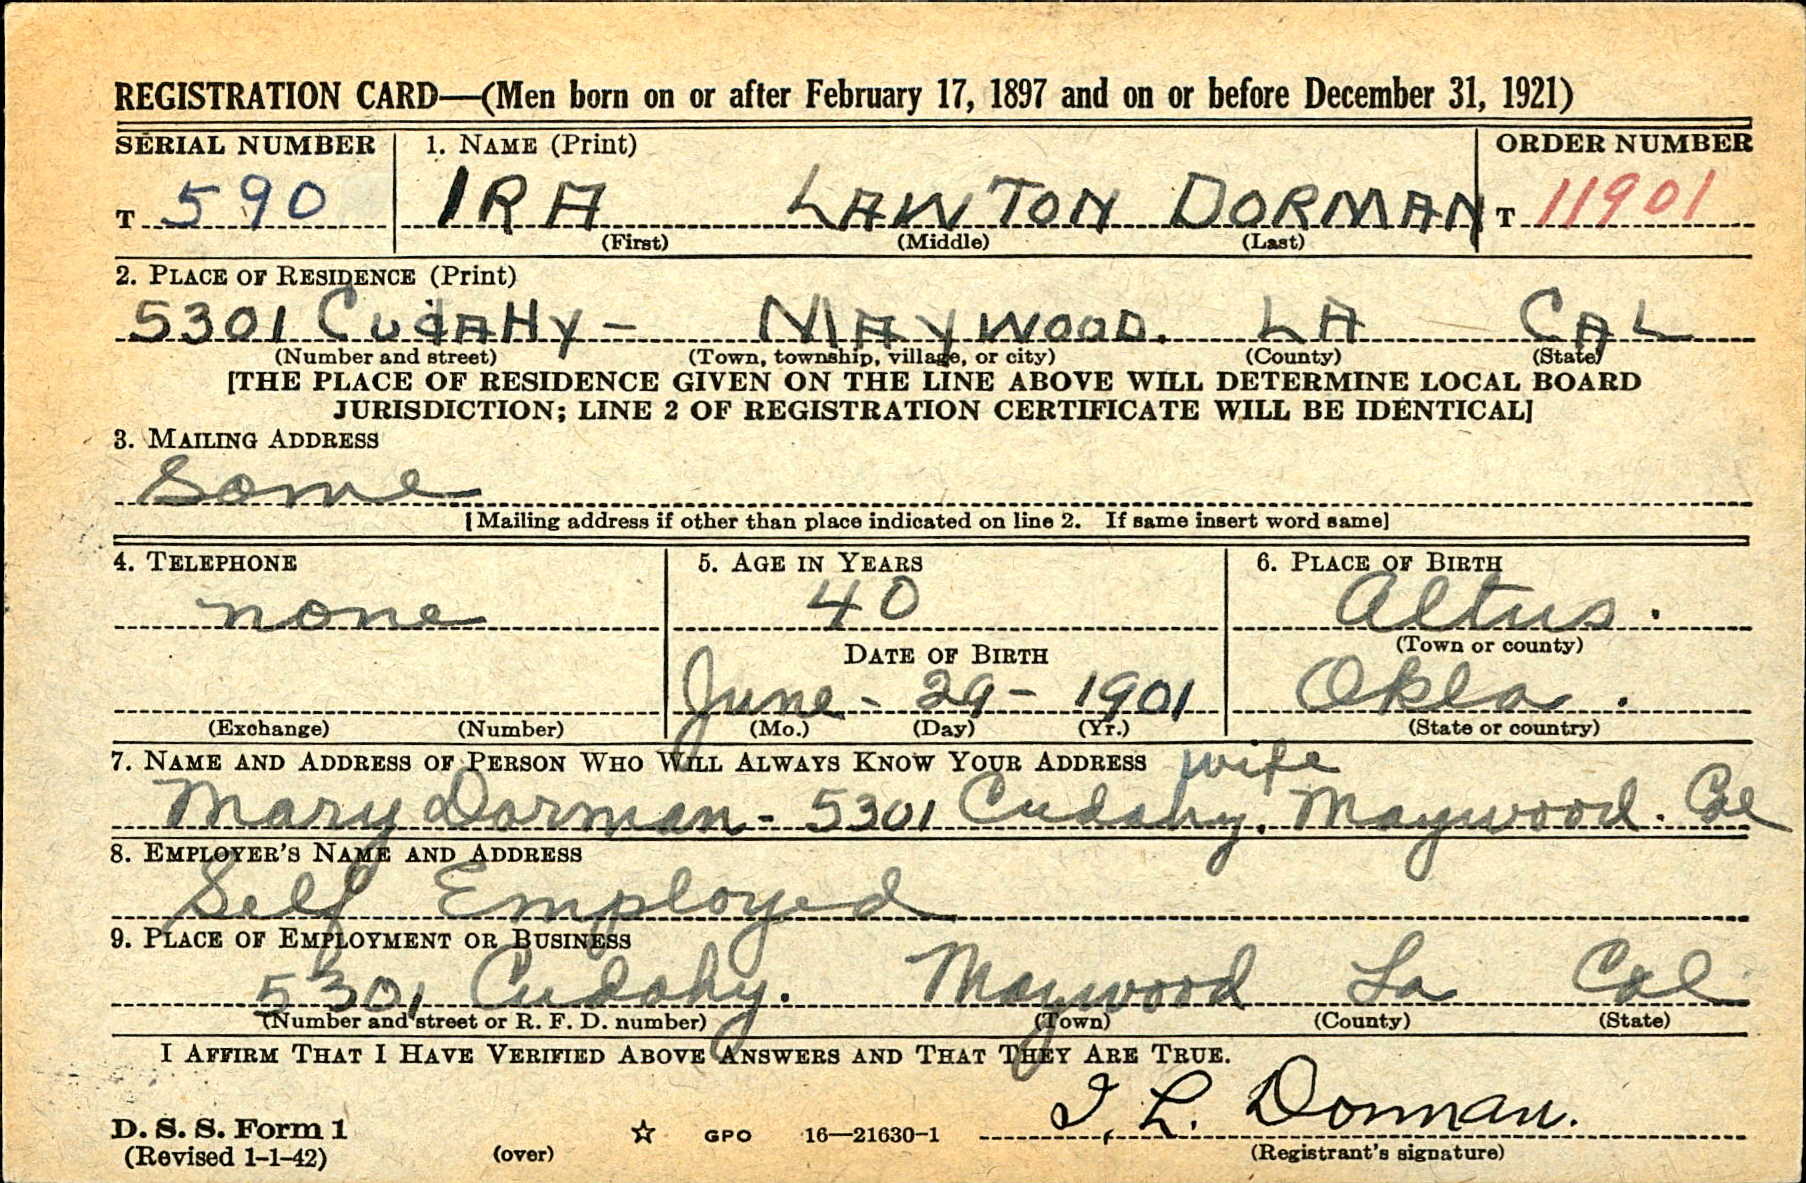 REGISTRATION CARD—(Men born on or after February 17, 1897 and on or before December 31, 1921)
SERIAL NUMBER 1. NAME (Print) ORDER NUMBER
T 590 IRA LAWTON DORMAN T 11901
(First) (Middle) (Last)
2. PLACE OF RESIDENCE (Print)
5301 CudAHy - MAywooD. LA CAL
(Number and street) (Town, township, village, or city) (County) (State)
[THE PLACE OF RESIDENCE GIVEN ON THE LINE ABOVE WILL DETERMINE LOCAL BOARD
JURISDICTION; LINE 2 OF REGISTRATION CERTIFICATE WILL BE IDENTICAL]
3. MAILING ADDRESS
Same
[Mailing address if other than place indicated on line 2. If same insert word same]
4. TELEPHONE 5. AGE IN YEARS 6. PLACE OF BIRTH
none 40 Altus.
(Town or county)
DATE OF BIRTH
June - 29 - 1901 Okla.
(Exchange) (Number) (Mo.) (Day) (Yr.) (State or country)
7. NAME AND ADDRESS OF PERSON WHO WILL ALWAYS KNOW YOUR ADDRESS wife
Mary Dorman - 5301 Cudahy. Maywood. Cal
8. EMPLOYER'S NAME AND ADDRESS
Self Employed
9. PLACE OF EMPLOYMENT OR BUSINESS
5301 Cudahy. Maywood La Cal
(Number and street or R. F. D. number) (Town) (County) (State)
I AFFIRM THAT I HAVE VERIFIED ABOVE ANSWERS AND THAT THEY ARE TRUE.
I. L. Dorman.
D. S. S. Form 1
(Revised 1-1-42) (over) ☆ GPO 16—21630-1 (Registrant's signature)